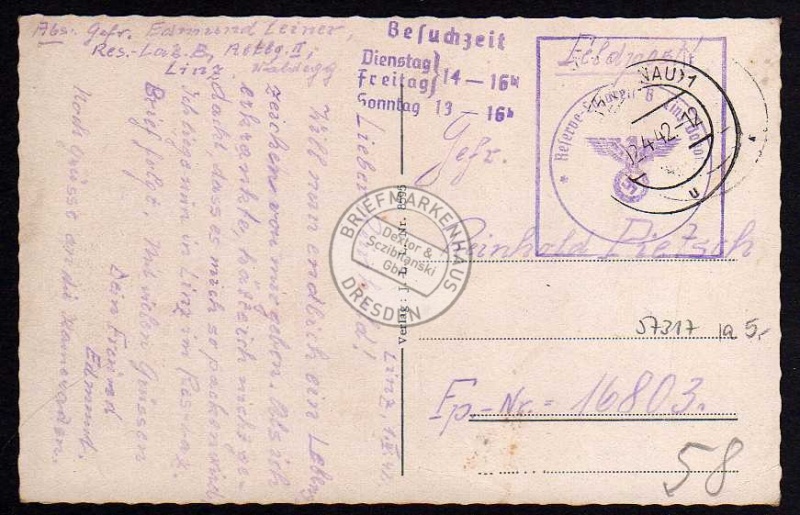 Abs: Gefr. Edmund Leiner,
Res.-Laz. B, Abtlg. II,
Linz, Waldegg
Besuchzeit
Dienstag
Freitag } 14 — 16h
Sonntag 13 — 16h
Feldpost!
Linz Donau
(DONAU) 1
12.4.42.-12
u
Gefr.
Reinhold Pietzsch
Fp-Nr. 16803.
57317 1a 5,-
58
Verlag: Nr. 8595
BRIEFMARKENHAUS
Dextor &
Sczibilanski
GbR
DRESDEN
Linz,
Lieber
Will nun endlich ein Lebens
zeichen von mir geben. Als ich
erkrankte, hätte ich nicht ge-
dacht dass es mich so packen wird,
Ich liege nun in Linz im Res-Laz.
Brief folgt. Mit vielen Grüssen
Dein Freund
Edmund.
Noch Grüsse an die Kameraden.